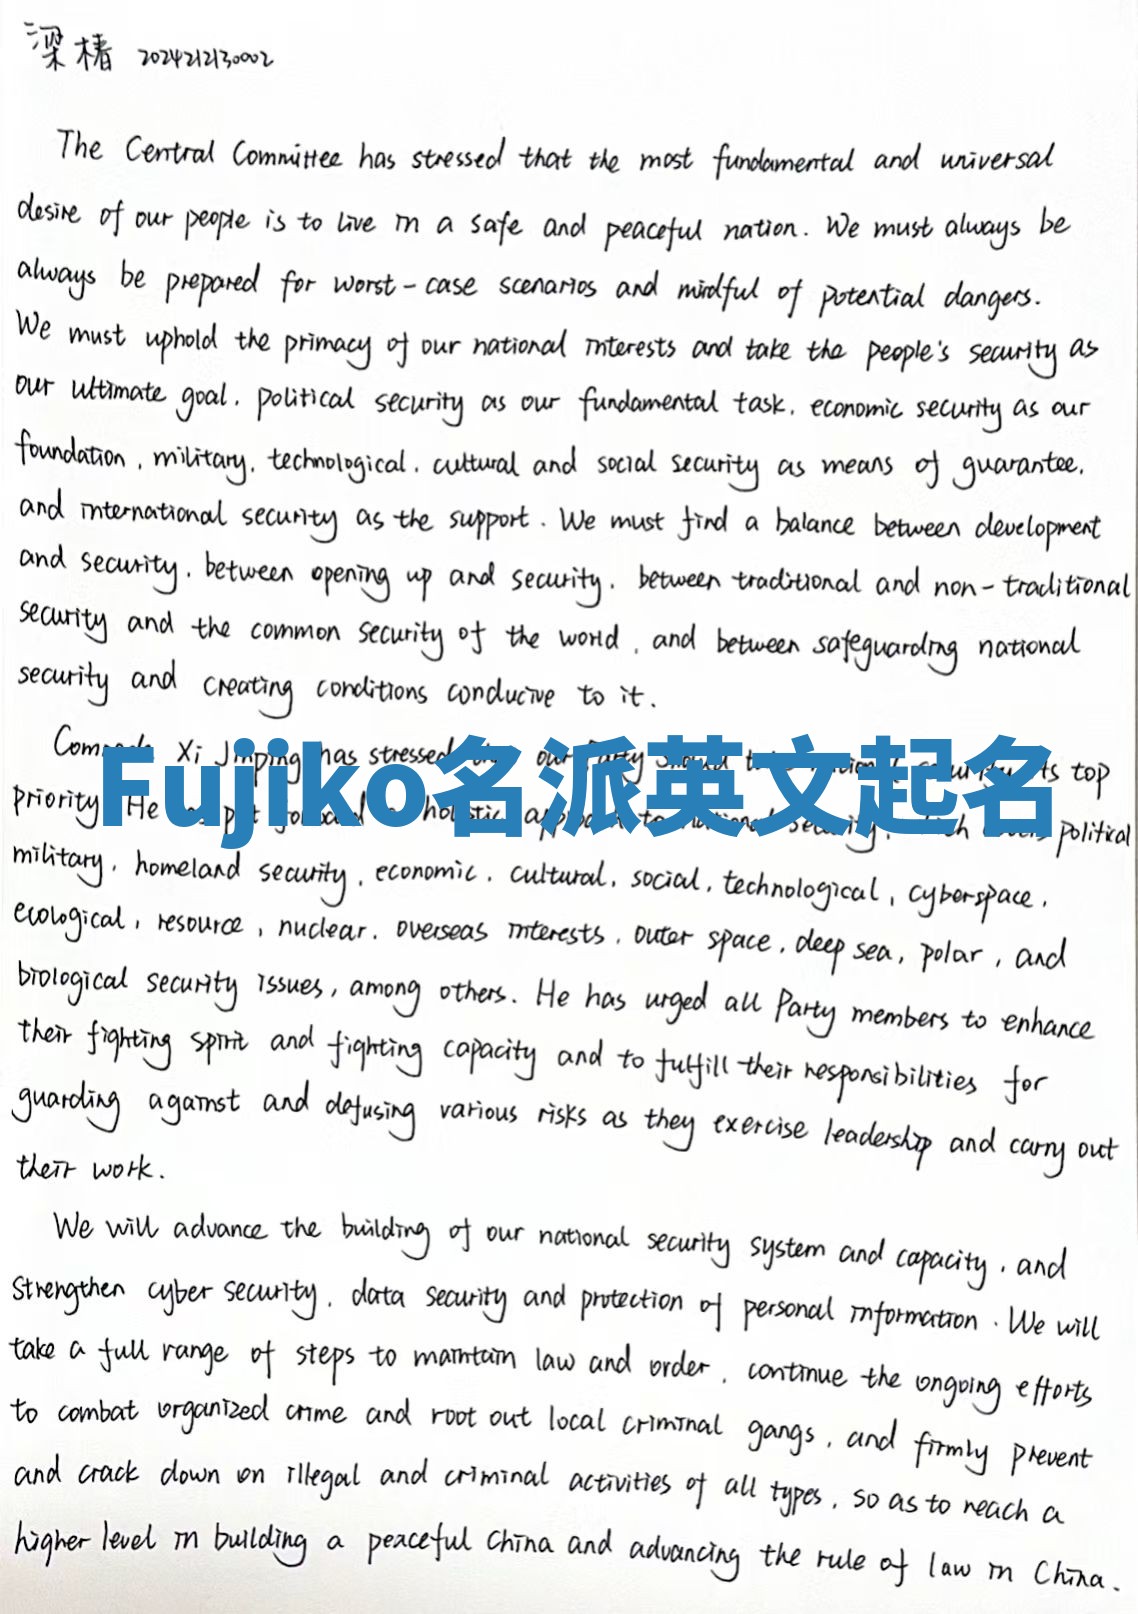 梁椿 2024212130002
The Central Committee has stressed that the most fundamental and universal
desire of our people is to live in a safe and peaceful nation. We must always be
always be prepared for worst-case scenarios and mindful of potential dangers.
We must uphold the primacy of our national interests and take the people's security as
our ultimate goal, political security as our fundamental task, economic security as our
foundation, military, technological, cultural and social security as means of guarantee,
and international security as the support. We must find a balance between development
and security, between opening up and security, between traditional and non-traditional
security and the common security of the world, and between safeguarding national
security and creating conditions conducive to it.
Xi Jinping has stressed our Party should top
Fujiko名派英文起名
priority He holistic political
military, homeland security, economic, cultural, social, technological, cyberspace,
ecological, resource, nuclear, overseas interests, outer space, deep sea, polar, and
biological security issues, among others. He has urged all Party members to enhance
their fighting spirit and fighting capacity and to fulfill their responsibilities for
guarding against and defusing various risks as they exercise leadership and carry out
their work.
We will advance the building of our national security system and capacity, and
strengthen cyber security, data security and protection of personal information. We will
take a full range of steps to maintain law and order, continue the ongoing efforts
to combat organized crime and root out local criminal gangs, and firmly prevent
and crack down on illegal and criminal activities of all types, so as to reach a
higher level in building a peaceful China and advancing the rule of law in China.